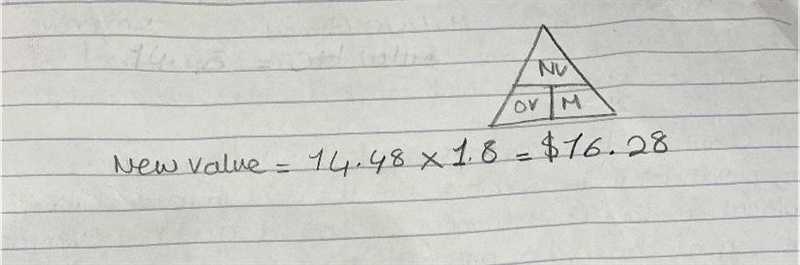 NV
OV M
New value = 14.48 × 1.8 = $16.28